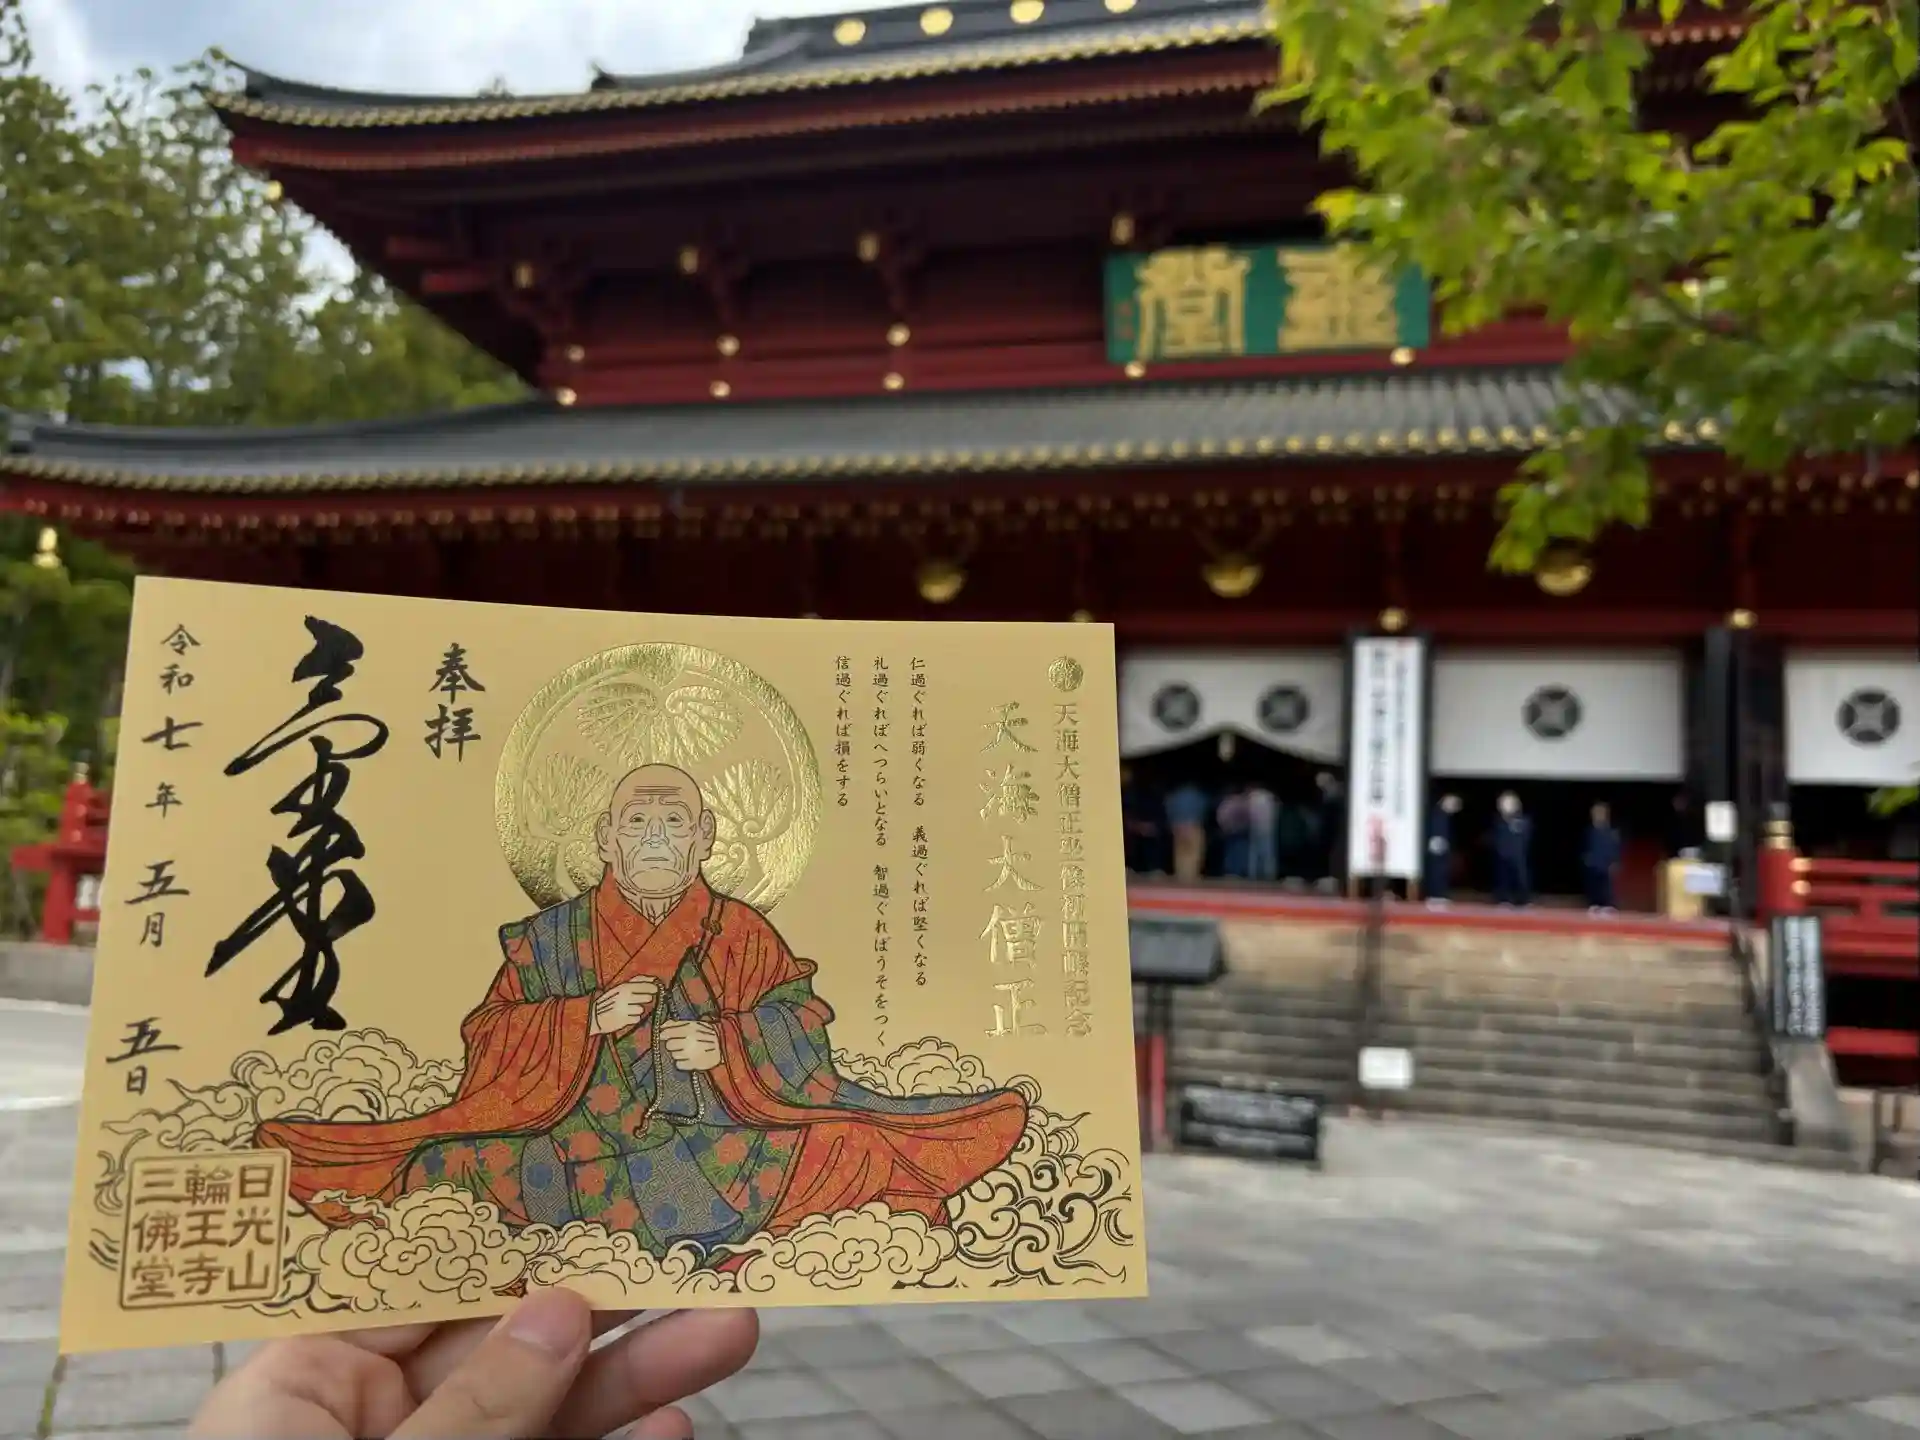 天海大僧正坐像初開帳記念
天海大僧正
仁過ぐれば弱くなる 義過ぐれば堅くなる
礼過ぐればへつらいとなる 智過ぐればうそをつく
信過ぐれば損をする
奉拝
令和七年五月五日
日光山
輪王寺
三佛堂